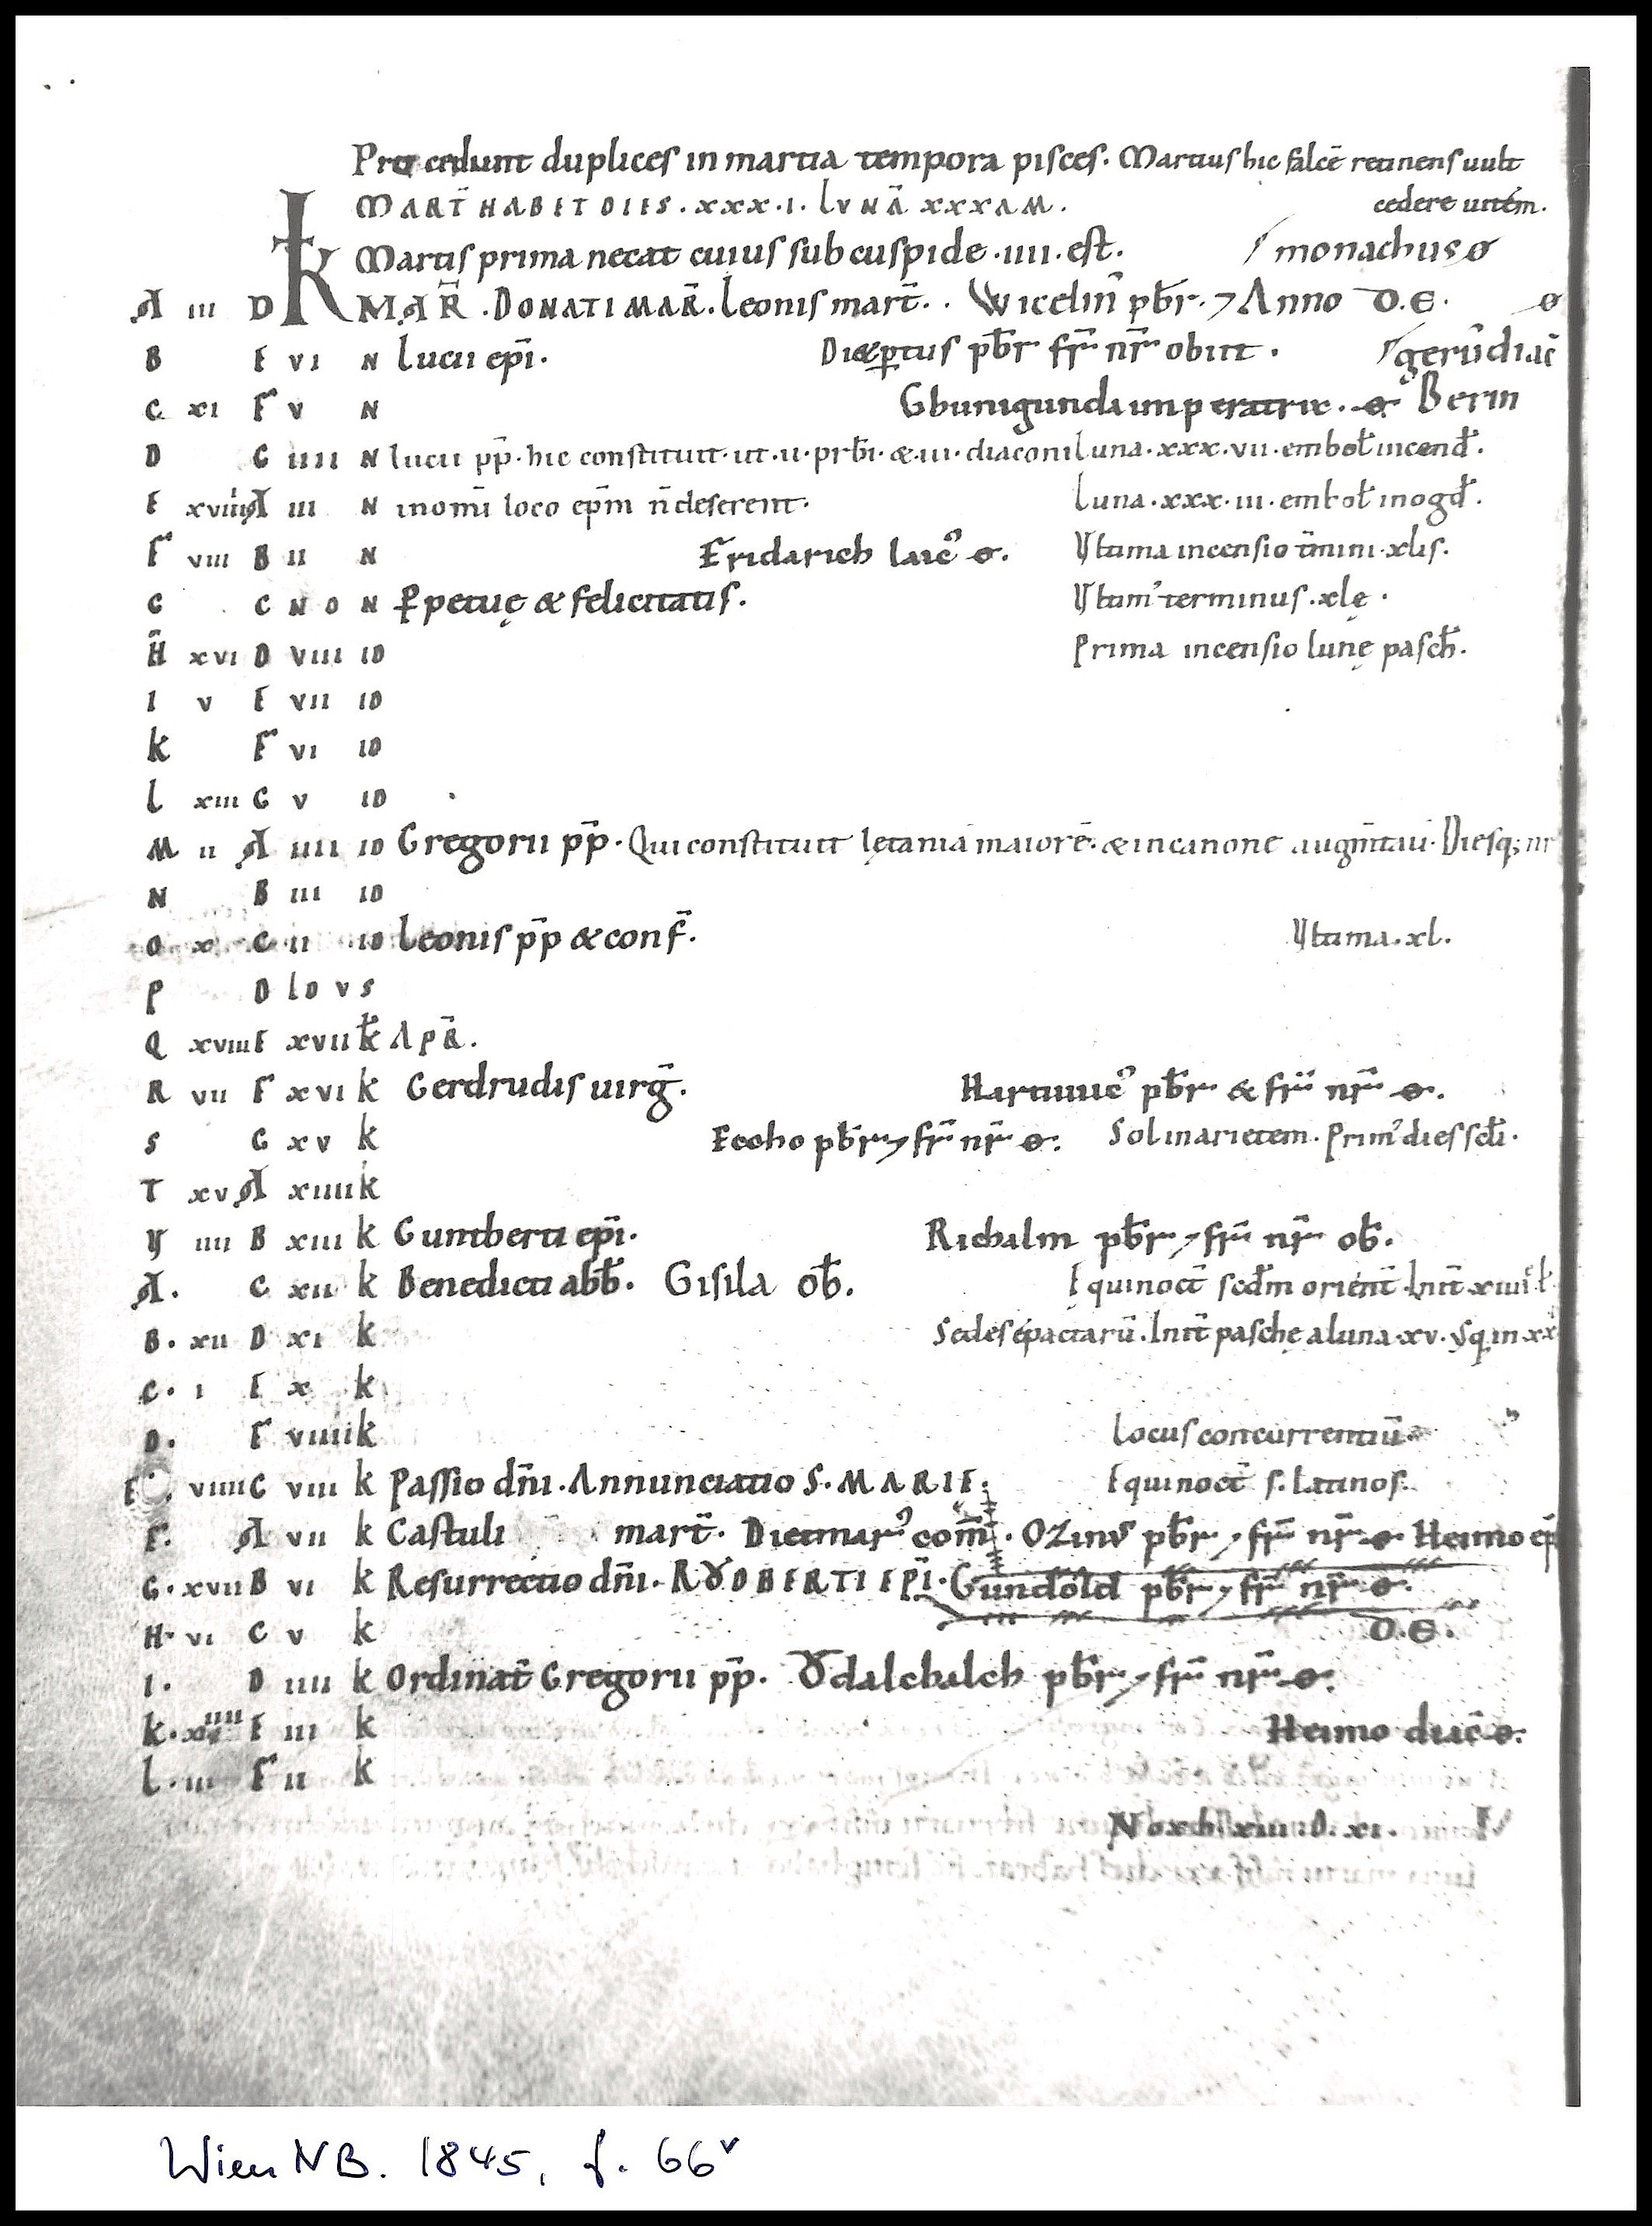 Procedunt duplices in martia tempora pisces. Martius hic falcē retinens uult
MART̄ HABET DIES. xxx.i. LVNĀ XXXAM. cedere uitēm.
Martis prima necat cuius sub cuspide .iiii. est. monachus ꝋ
A iii D K MAR̄. DONATI MAR̄. Leonis mart̄. Wicelin̄ pƀr. ⁊ Anno D.E. ꝋ
B E VI N Lucii ep̄i. Dieꝑtus pƀr fr̄ nr̄ obiit. gerūdiac̄
C xi F V N Chunigunda imperatrix. ꝋ Berin
D G IIII N Lucii pp̄. hic constituit. ut .ii. prƀi. & .iii. diaconi Luna .xxx. vii. emboł incend̄.
E xviiii A III N in om̄i loco ep̄m n̄ desererent. Luna .xxx. iii. emboł in ogd̄.
F viii B II N Fridarich laic᾽ ꝋ. Vltima incensio t̄mini .xlis.
G C N O N ꝑpetuę & felicitatis. Vltim᾽ terminus .xlę.
H xvi D VIII ID Prima incensio lunę pasch̄.
I v E VII ID
K F VI ID
L xiii G V ID
M ii A IIII ID Gregorii pp̄. Qui constituit lętaniā maiorē. & in canone augm̄tau̅. Diesq; nr
N B III ID
O x C II ID Leonis pp̄ & conf̄. Vltima .xl.
P D IDVS
Q xviii E XVII k̄ APR̄.
R vii F XVI k Gerdrudis uirḡ. Hartuuic᾽ pƀr & fr̄ nr̄ ꝋ.
S G XV k Eccho pƀr ⁊ fr̄ nr̄ ꝋ. Sol in arietem. Prim᾽ dies scłi.
T xv A XIIII k
V iiii B XIII k Guntherti ep̄i. Richalm pƀr ⁊ fr̄ nr̄ oƀ.
A. C XII k Benedicti abƀ. Gisila oƀ. Equinoct̄ scd̄m orient̄. Init̄ xiiii ł
B. xii D XI k Sedes epactarū. Init̄ paschę a luna .xv. Vsq. in xx
C. i E X k
D. F VIIII k Locus concurrentiū
E. viiii G VIII k Passio dn̄i. Annunciatio S. MARIE. Equinoct̄ s. Latinos.
F. A VII k Castuli mart̄. Dietmar᾽ com̄. OZinus pƀr ⁊ fr̄ nr̄ ꝋ. Heimo ep̄
G. xvii B VI k Resurrectio dn̄i. RǑDBERTI EP̄I. Gundold pƀr ⁊ fr̄ nr̄ ꝋ.
H. vi C V k D.E.
I. D IIII k Ordinat̄ Gregorii pp̄. Ǒdalchalch pƀr ⁊ fr̄ nr̄ ꝋ.
K. E III k Heimo diac̄ ꝋ.
L. iii F II k
Nox h̄ xiii. D. xi.
Wien NB. 1845, f. 66ᵛ